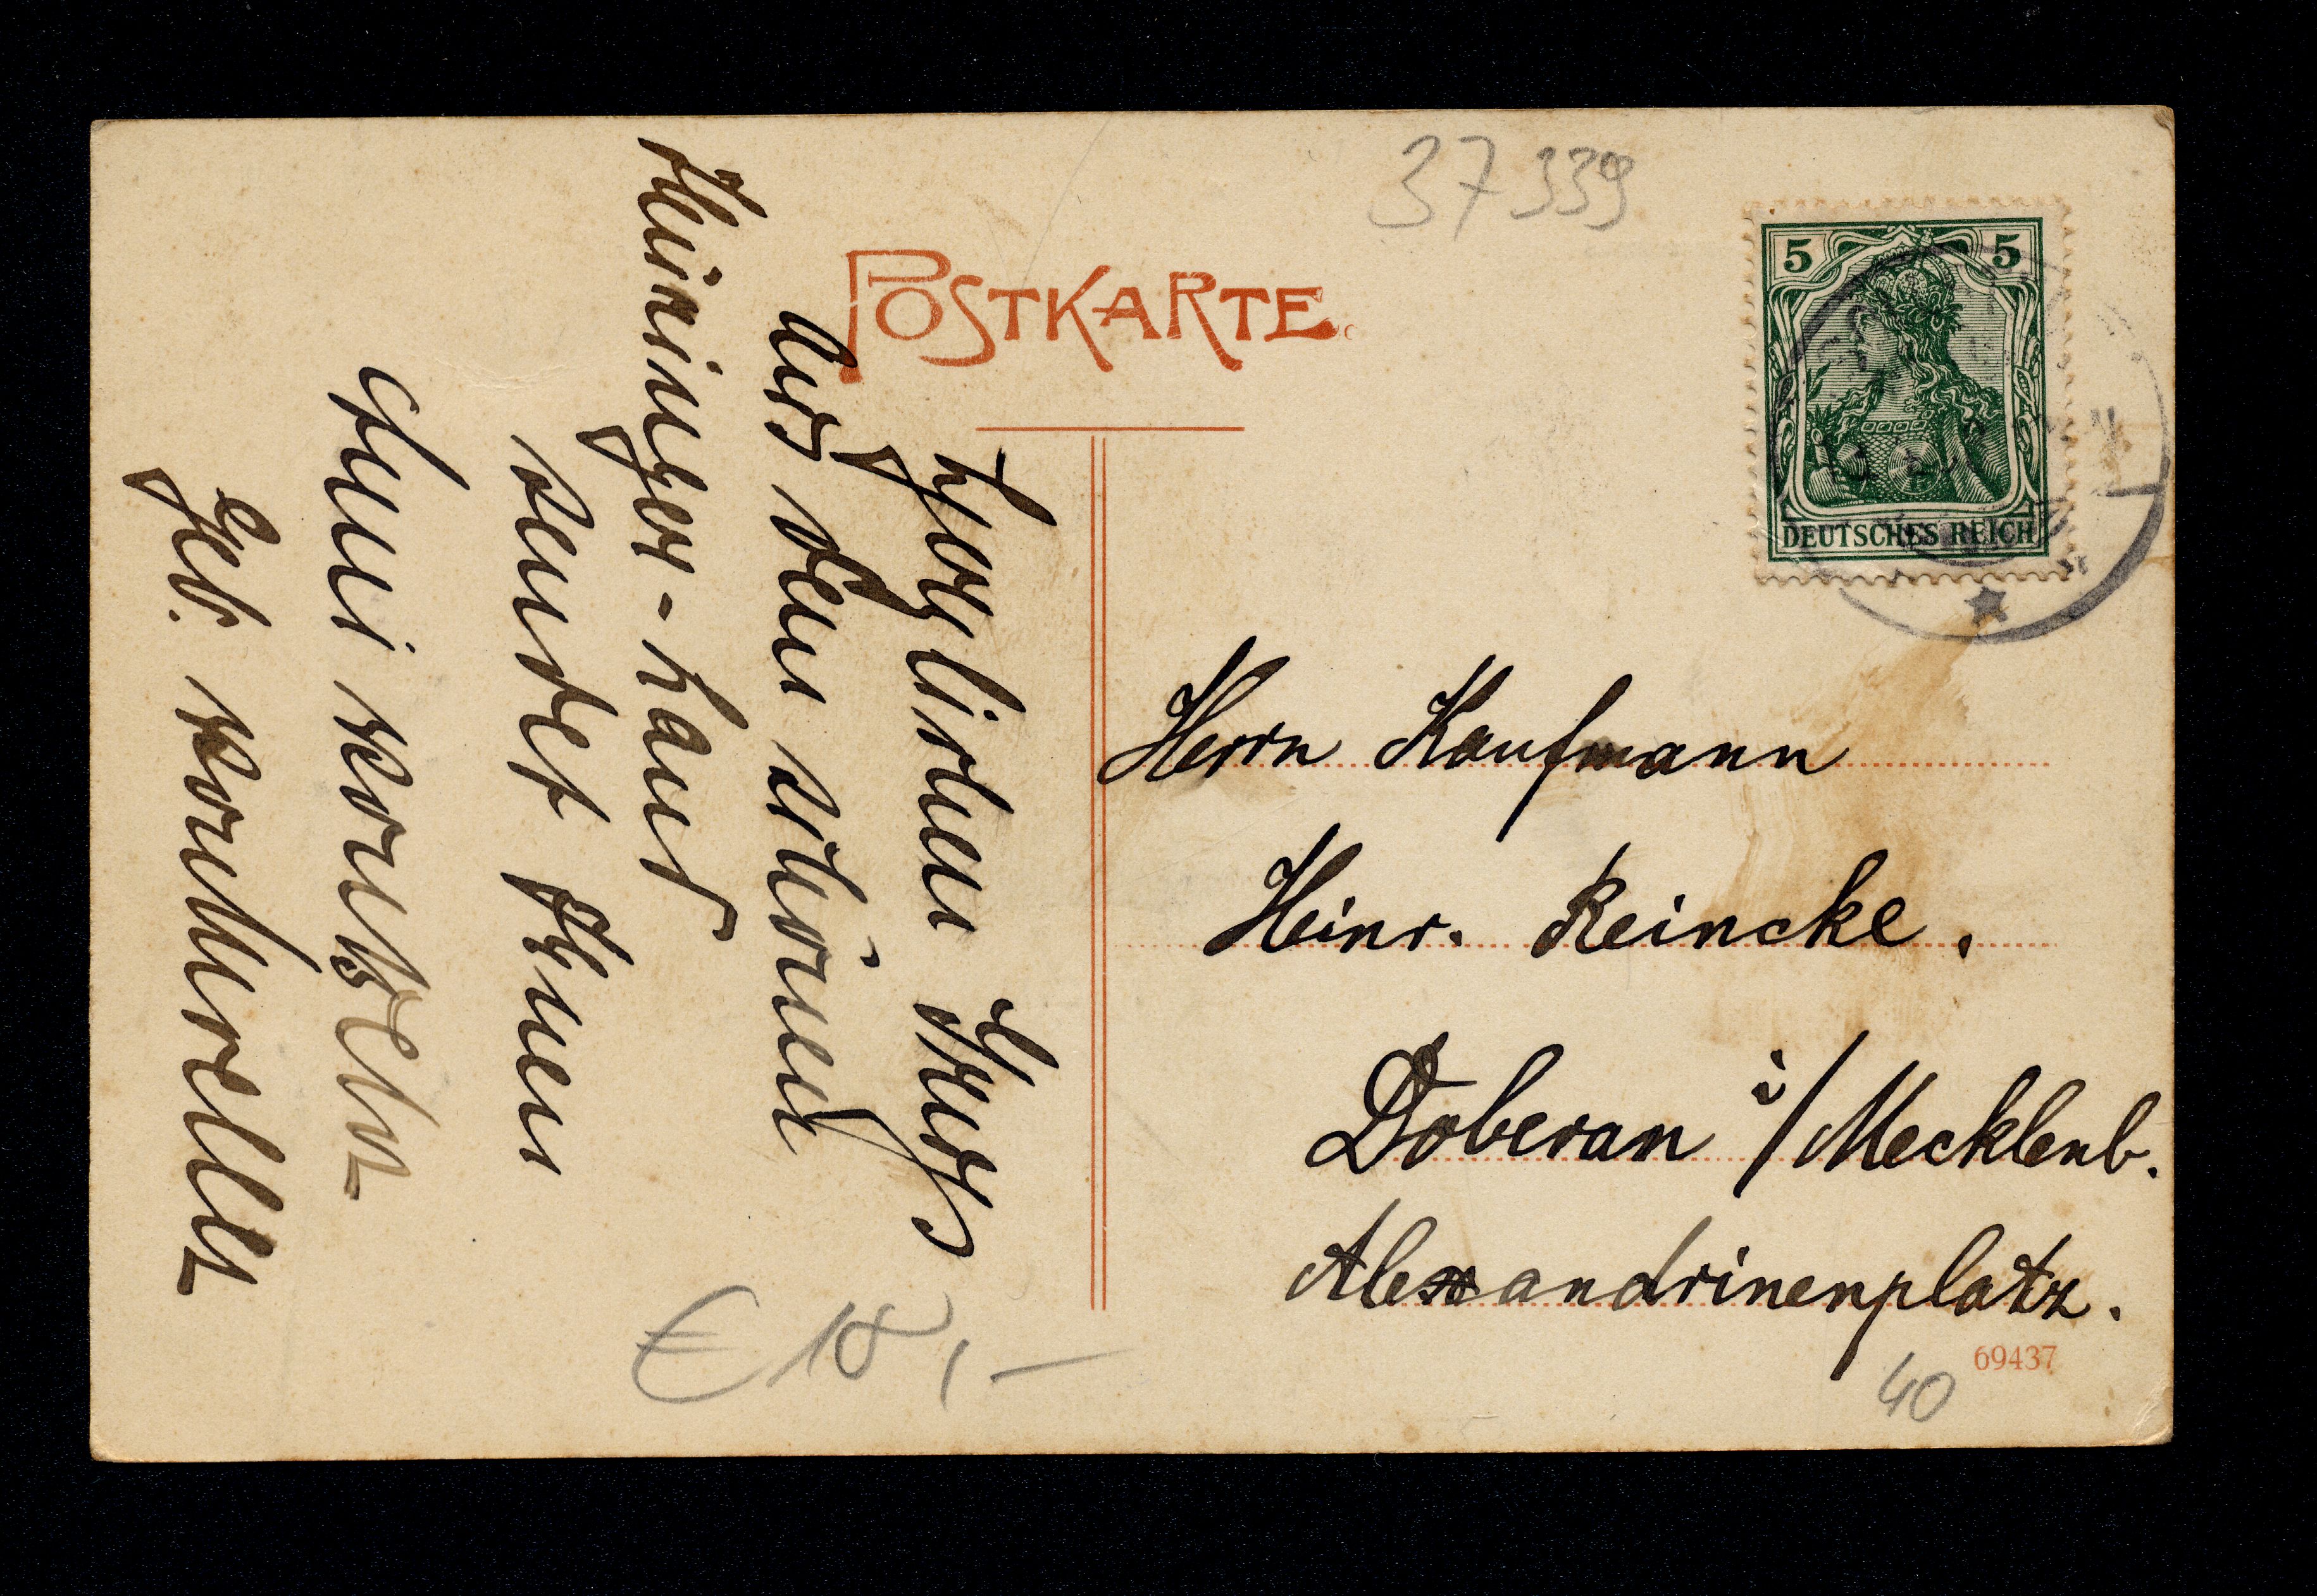 37339
POSTKARTE
5 5
DEUTSCHES REICH
Herzlichen Gruss
aus dem schönen
Thüringer-Land
sendet Ihnen
geb.
Herrn Kaufmann
Heinr. Reincke.
Doberan i/Mecklenb.
Alexandrinenplatz.
69437
40
€ 18,-